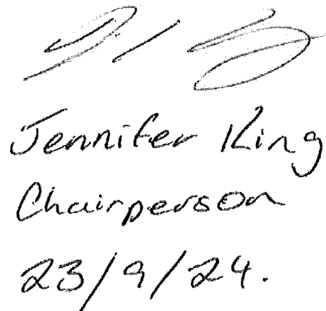 Jennifer King
Chairperson
23/9/24.